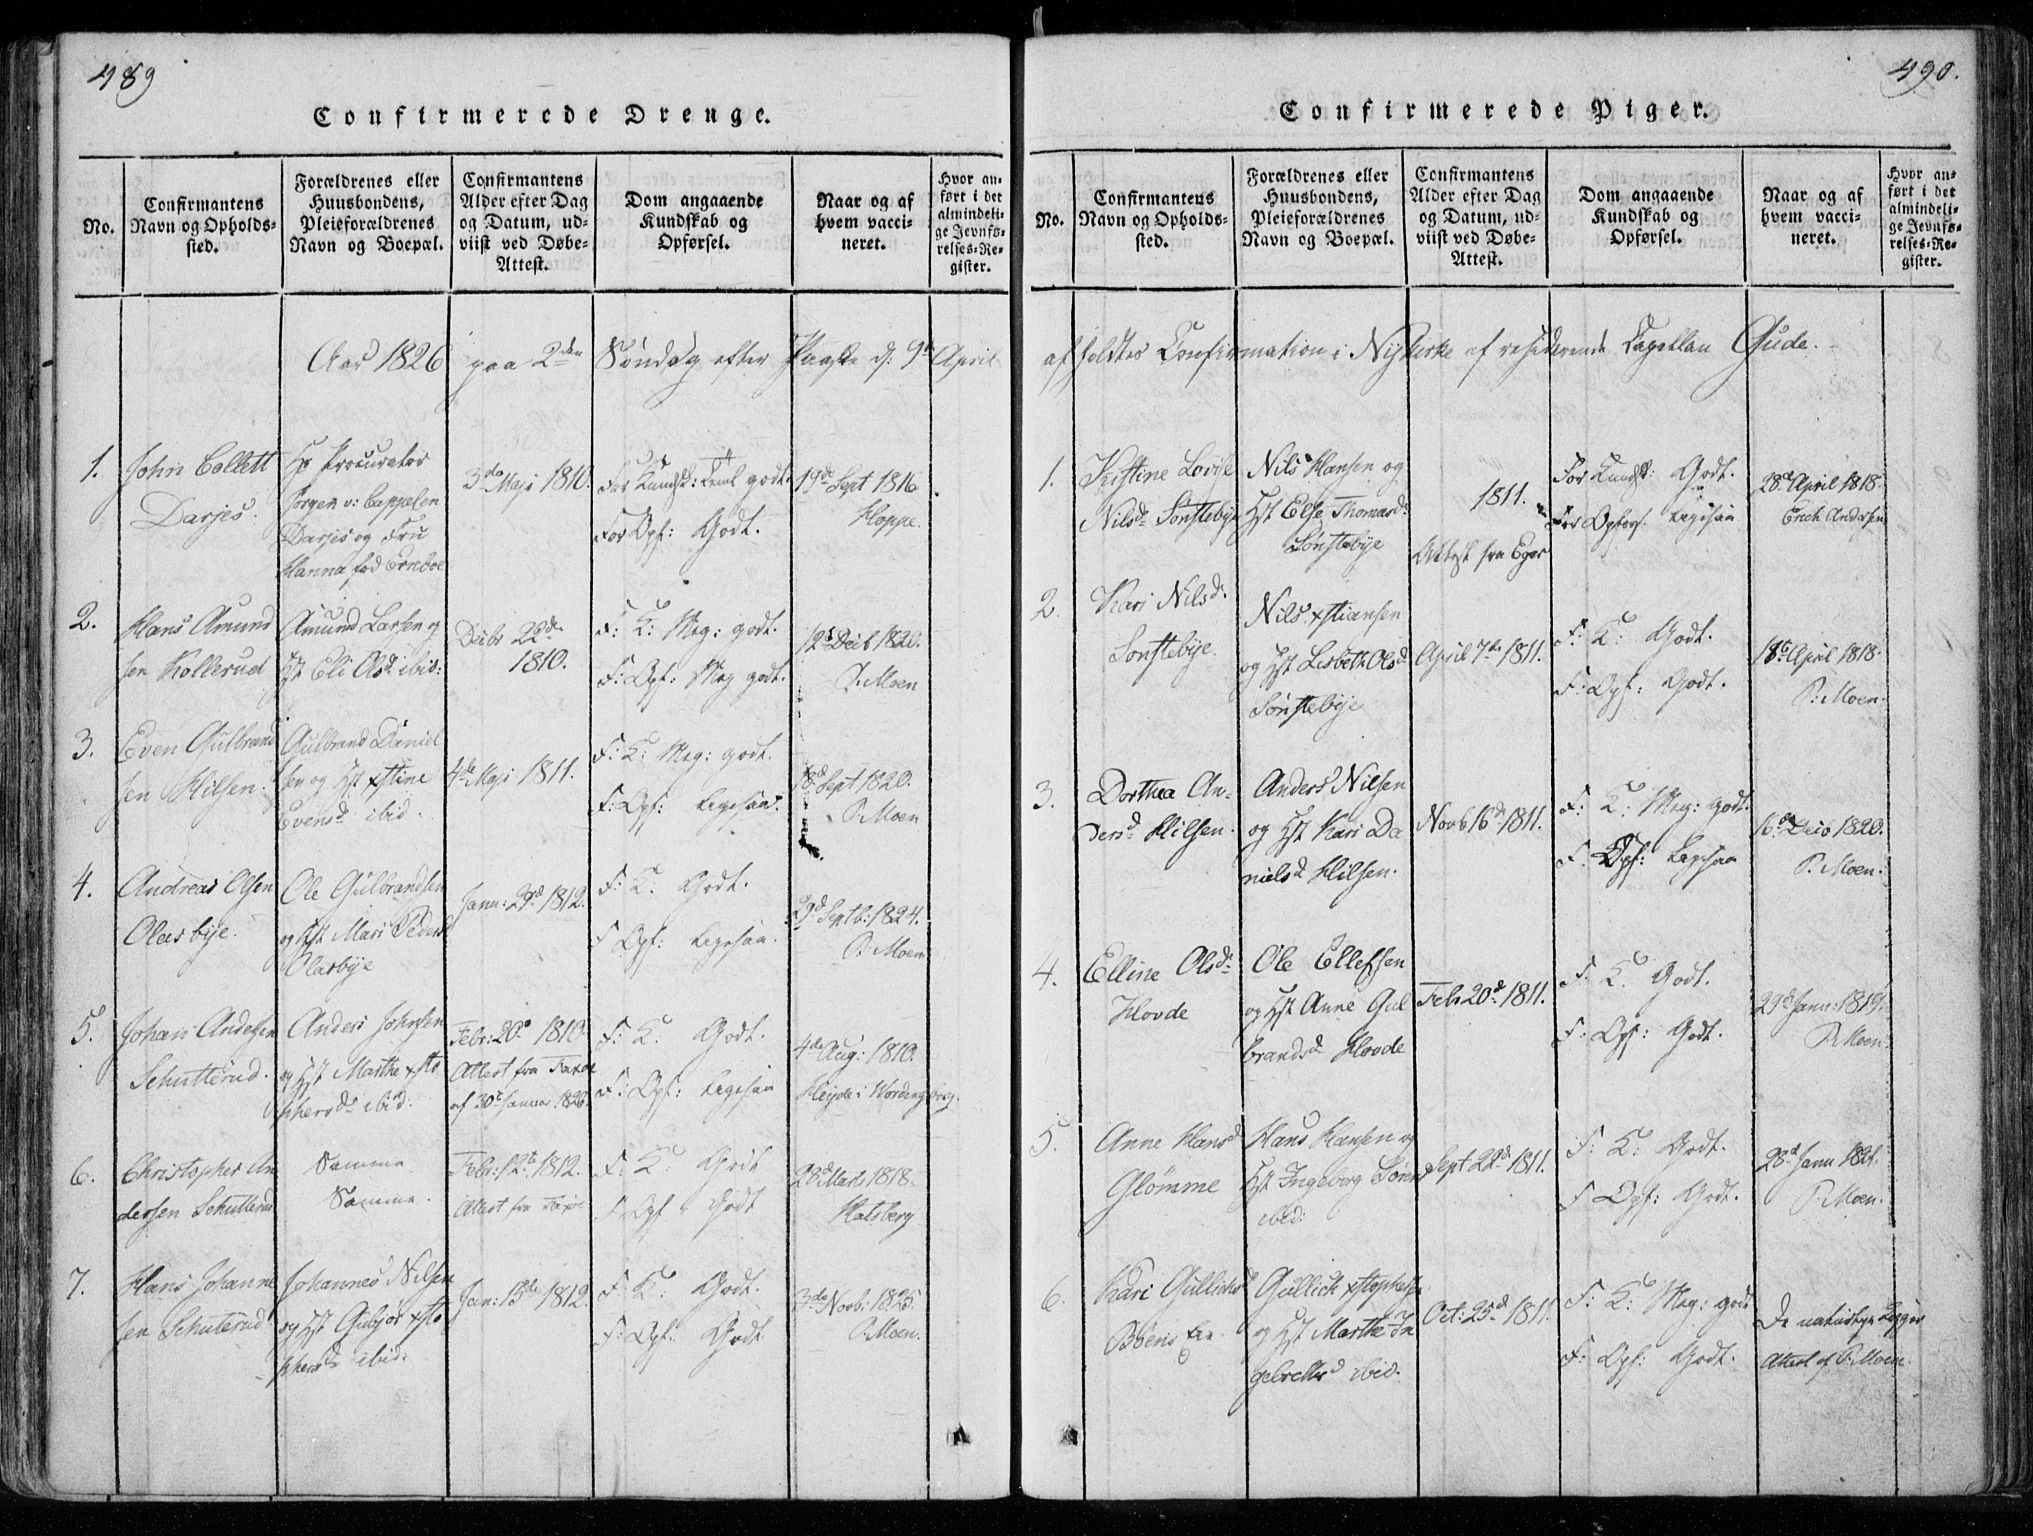 489
Confirmerede Drenge.
No.
Confirmantens
Navn og Opholds-
sted.
Forældrenes eller
Huusbondens,
Pleieforældrenes
Navn og Boepæl.
Confirmantens
Alder efter Dag
og Datum, ud-
viist ved Døbe-
Attest.
Dom angaaende
Kundskab og
Opførsel.
Naar og af
hvem vacci-
neret.
Hvor an-
ført i det
almindeli-
ge Jevnfø-
relses-Re-
gister.
Aar 1826 paa 2den Søndag efter Paaske d: 9de April
1.
John Collett
Darjes.
Hr Procurator
Jørgen v: Cappelen
Darjes og Fru
Hanna fød
3de Maji 1810.
For Kundsk: godt.
For Opf: Godt.
19de Sept 1816
Hoppe.
2.
Hans Amund
sen Kollerud
Amund Larsen og
Hst Eli Olsd ibid:
Decbr 22de
1810.
F: K: Meg: godt.
F: Opf: Meg godt.
12te Decb 1820.
P. Moen
3.
Even Gulbrand
sen Hilsen.
Gulbrand Daniel
sen og Hst xstine
Evensd ibid.
4de Maji 1811.
F: K: Meg: godt.
F: Opf: Ligesaa.
18d Sept 1820.
P. Moen
4.
Andreas Olsen
Olersbye.
Ole Gulbrandsen
og Hst Mari Peders
Olersbye
Janu: 23d 1812.
F: K. Godt.
F Opf: Ligesaa.
29d Septb: 1824.
P. Moen
5.
Johan Andersen
Schutterud.
Anders Johnsen
og Hst Marthe xsto
phersd ibid.
Febr: 20d 1810.
Attest fra Faxøe
af 30te Januar 1826.
F: K. Godt.
F: Opf: Ligesaa
4de Aug: 1810.
Heyde i Wordingborg.
6.
Christopher An
dersen Schutterud
Samme
Samme.
Febr: 12te 1812.
Attest fra Faxøe
F: K: Godt
F Opf Godt
28d Marts 1818.
Hatsberg
7.
Hans Johanne
sen Schuterud
Johannes Nilsen
og Hst Gubjør xsto
phersd ibid:
Jan: 13de 1812.
F: K: Godt.
F: Opf: Godt
3de Novb: 1825.
P. Moen.
490.
Confirmerede Piger.
No.
Confirmantens
Navn og Opholds-
sted.
Forældrenes eller
Huusbondens,
Pleieforældrenes
Navn og Boepæl.
Confirmantens
Alder efter Dag
og Datum, ud-
viist ved Døbe-
Attest.
Dom angaaende
Kundskab og
Opførsel.
Naar og af
hvem vacci-
neret.
Hvor an-
ført i det
almindeli-
ge Jevnfø-
relses-Re-
gister.
afholdtes Confirmation i Nykirke af residerende Capellan Gude.
1.
Kistine Lovise
Nilsd Sønstebye
Nils Hansen og
Hst Else Thomasd
Sønstebye
1811.
Attest fra Eger
For Kundsk: Godt.
For Opførs. Ligesaa
28d April 1818.
Erich Andersen
2.
Kari Nilsd.
Sønstebye.
Nils xstiansen
og Hst Lisbeth Olsd
Sønstebye
April 7de 1811.
F: K: Godt.
F: Opf: Godt.
18de April 1818.
P. Moen.
3.
Dorthea An-
dersd Hilsen.
Anders Nilsen
og Hst Kari Da
nielsd Hilsen.
Novb 16d 1811.
F: K: Meg: godt.
F: Opf: Ligesaa
16de Decb 1820.
P. Moen.
4.
Elline Olsd.
Hovde
Ole Ellefsen
og Hst Anne Gul
brandsd Hovde
Feb 20d 1811.
F: K. Godt.
F: Opf: Godt.
29d Janu: 1819.
P. Moen.
5.
Anne Hansd
Glømme
Hans Hansen og
Hst Ingeborg Sørens
ibid:
Sept 22d 1811.
F: K: Godt.
F Opf: Godt.
28d Janu 1821.
P. Moen.
6.
Kari Gullichsd
Bøens Eie
Gullich xstophersen
og Hst Marthe In
gebretsd ibid.
Oct: 25d 1811.
F: K: Meg: godt
F: Opf: Godt.
De naturlige Kopper
Attest af P. Moen.